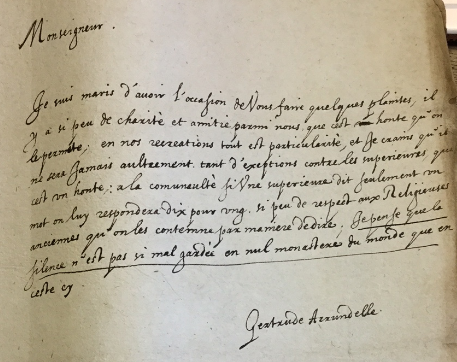 Monseigneur.
Je suis maris d'avoir l'occasion de Vous faire quelques plaintes, il
y a si peu de charité et amitié parmi nous, que c'est honte qu'on
le permete; en nos recreations tout est particularité, et Je crains qu'il
ne sera Jamais aultrement. tant d'exeptions contre les superieures, que
cest un honte; a la comuneulté si Une superieure dit seulement un
mot on luy respondera dix pour ung. si peu de respect aux Religieuses
anciennes qu'on les contemne par maniere de dire; Je pense que le
silence n'est pas si mal gardée en nul monastere du monde que en
ceste cy
Gertrude Arrundelle